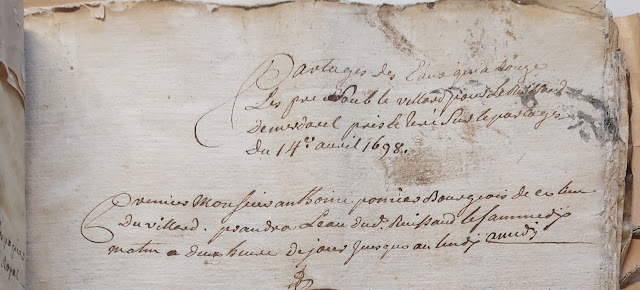 Partages des Eaux qui a Rouge
Les pre soub le villard pour le Ruissard
Demerdarel pris et tiré sur le partage
du 14e avril 1698.
Premier Monsieur anthoine pomier Bourgeois de ce lieu
du villard. prandra Leau dud. Ruissard le sammedy
matin a deux heure de jour jusques au lundy midy